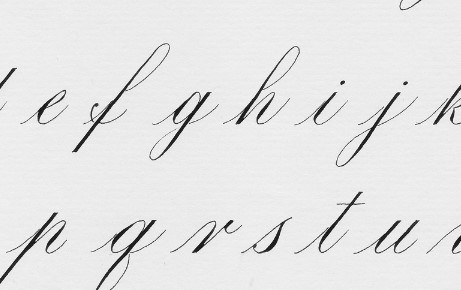 e f g h i j k
p q r s t u